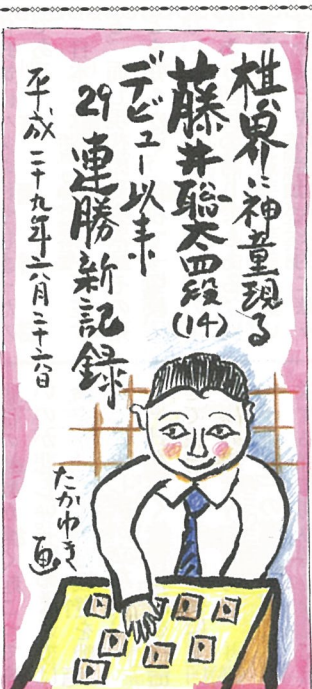 棋界に神童現る
藤井聡太四段(14)
デビュー以来
29連勝新記録
平成二十九年六月二十六日
たかゆき
画